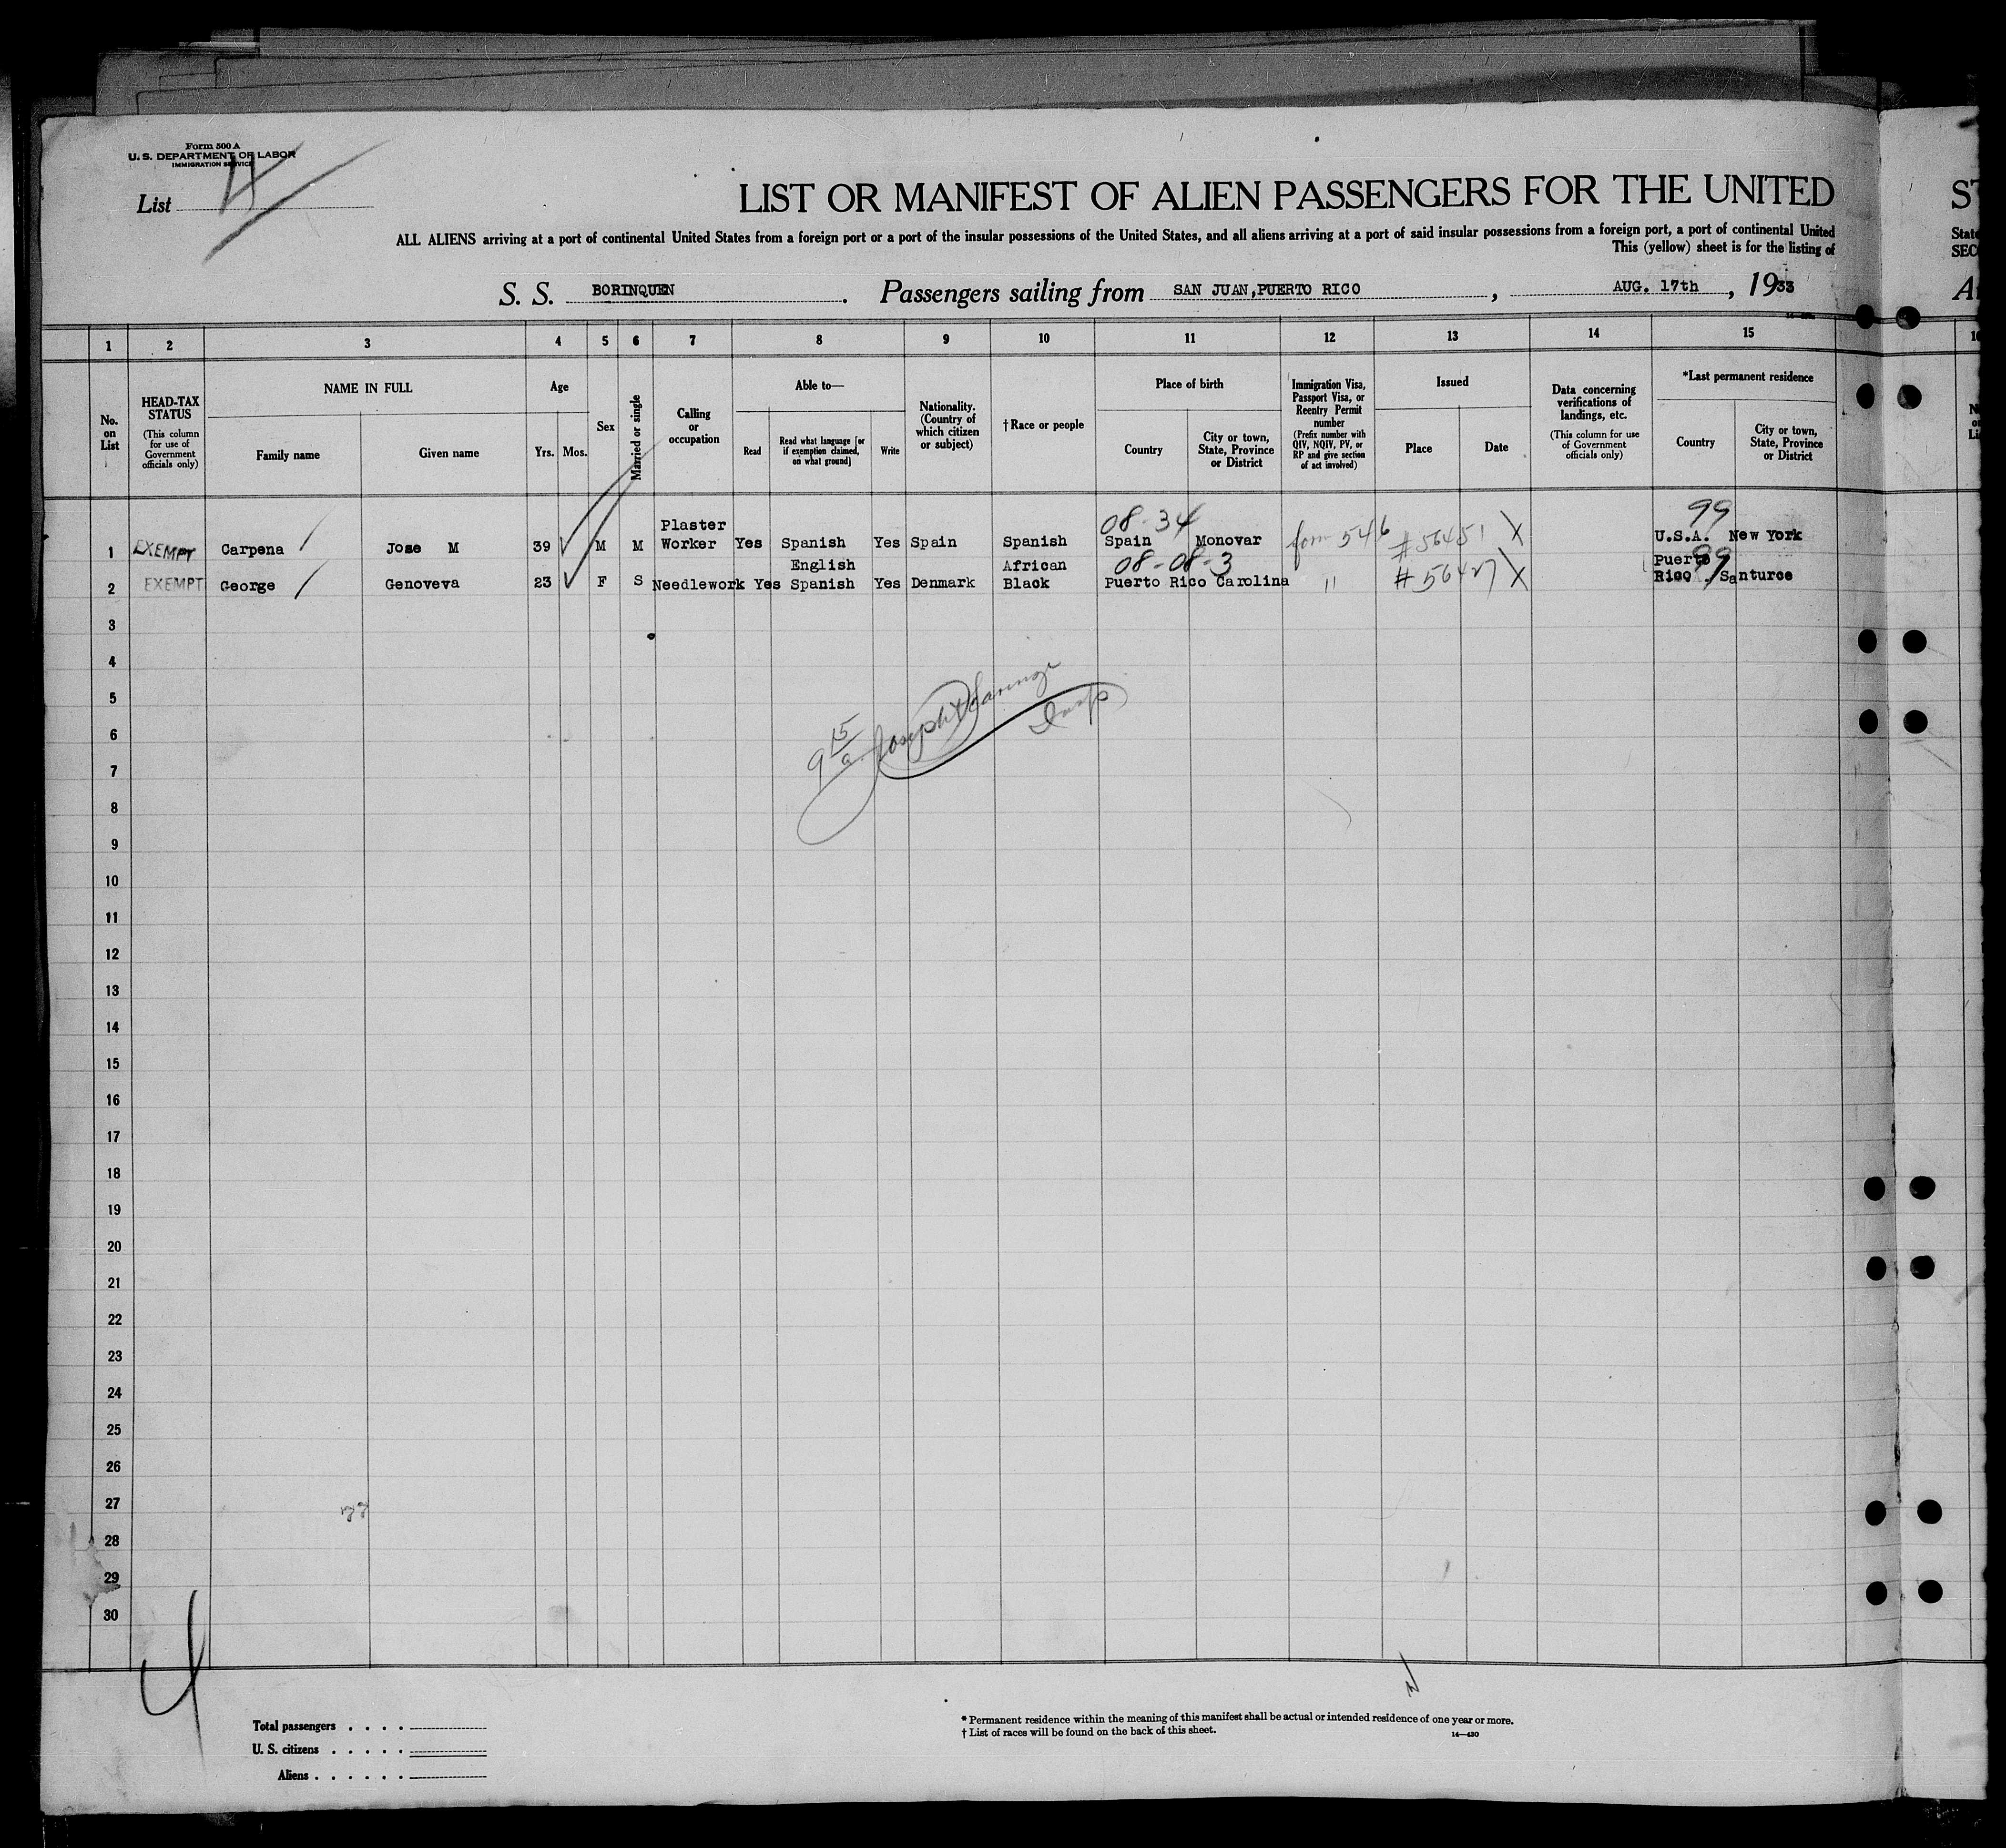 Form 500 A
U. S. DEPARTMENT OF LABOR
IMMIGRATION SERVICE
List 4
LIST OR MANIFEST OF ALIEN PASSENGERS FOR THE UNITED
ALL ALIENS arriving at a port of continental United States from a foreign port or a port of the insular possessions of the United States, and all aliens arriving at a port of said insular possessions from a foreign port, a port of continental United
This (yellow) sheet is for the listing of
S. S. BORINQUEN. Passengers sailing from SAN JUAN,PUERTO RICO, AUG. 17th, 1933
1 2 3 4 5 6 7 8 9 10 11 12 13 14 15
No. on List
HEAD-TAX STATUS
(This column for use of Government officials only)
NAME IN FULL
Family name
Given name
Age
Yrs. Mos.
Sex
Married or single
Calling or occupation
Able to—
Read
Read what language [or if exemption claimed, on what ground]
Write
Nationality. (Country of which citizen or subject)
†Race or people
Place of birth
Country
City or town, State, Province or District
Immigration Visa, Passport Visa, or Reentry Permit number
(Prefix number with QIV, NQIV, PV, or RP and give section of act involved)
Issued
Place
Date
Data concerning verifications of landings, etc.
(This column for use of Government officials only)
*Last permanent residence
Country
City or town, State, Province or District
08-34 99
1 EXEMPT Carpena Jose M 39 M M Plaster Worker Yes Spanish Yes Spain Spanish Spain Monovar form 546 #56451 X U.S.A. New York
08-08-3 99
2 EXEMPT George Genoveva 23 F S Needlework Yes English Spanish Yes Denmark African Black Puerto Rico Carolina " #56427 X Puerto Rico Santurce
3
4
5
6
7
8
9
10
11
12
13
14
15
16
17
18
19
20
21
22
23
24
25
26
27
28
29
30
9 15/a Joseph
Insp
4
Total passengers . . . .
U. S. citizens . . . . .
Aliens . . . . . .
* Permanent residence within the meaning of this manifest shall be actual or intended residence of one year or more.
† List of races will be found on the back of this sheet.
14—430